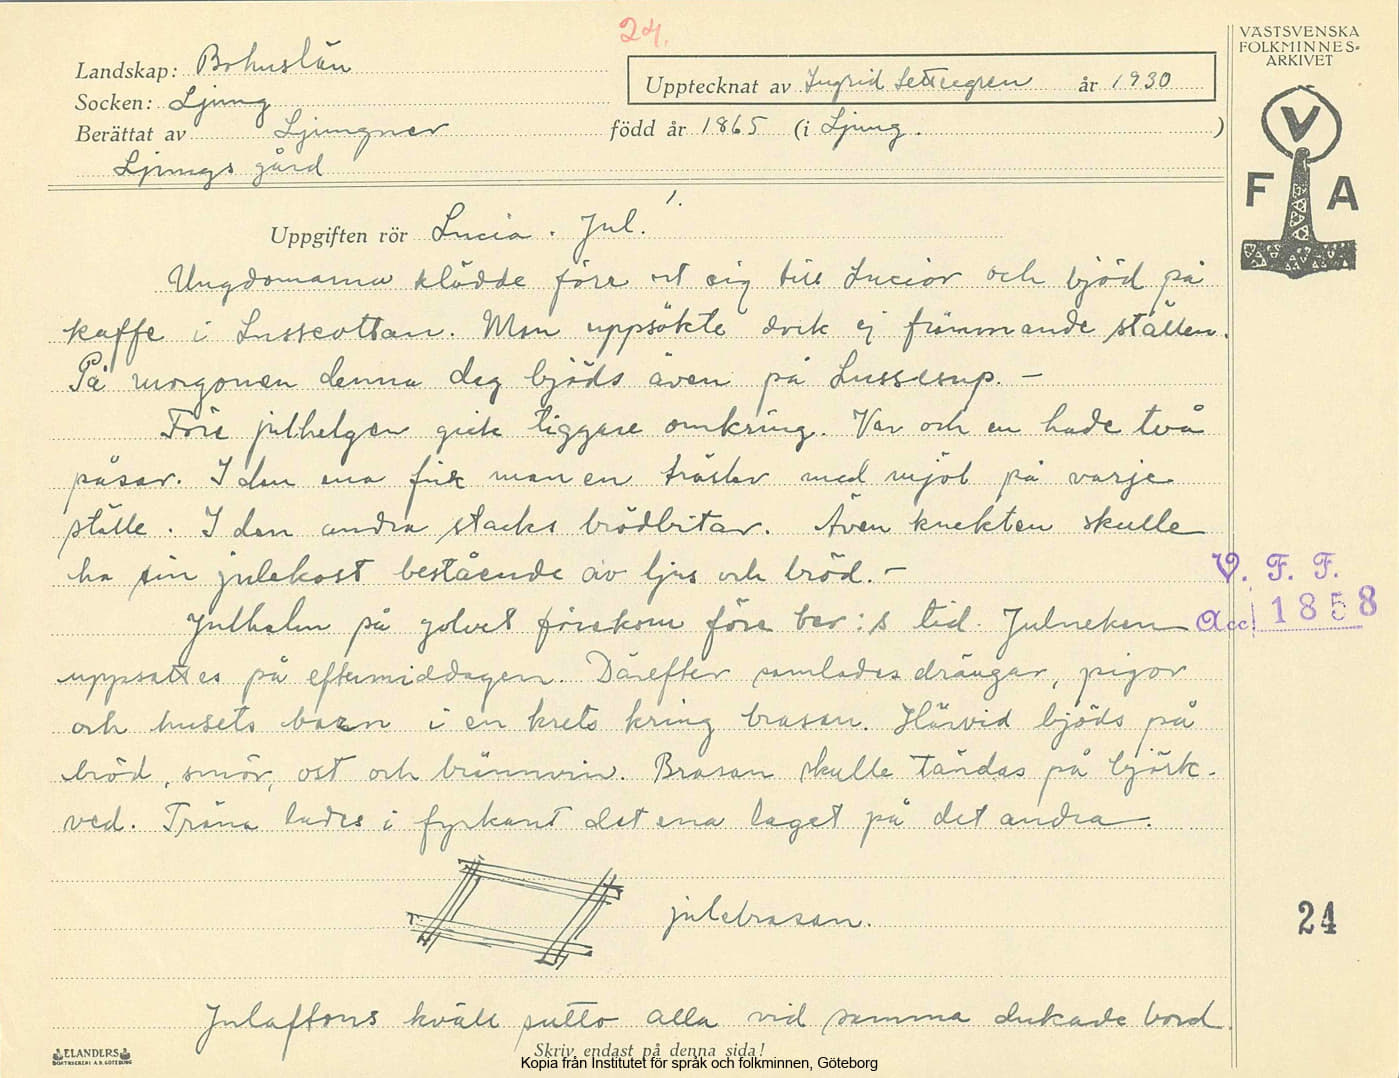 24.
VÄSTSVENSKA
FOLKMINNES-
ARKIVET
Landskap: Bohuslän
Upptecknat av Ingrid år 1930
Socken: Ljung
Berättat av Ljungner född år 1865 (i Ljung.)
Ljungs gård
V
F A
1.
Uppgiften rör Lucia. Jul.
Ungdomarna klädde förr ut sig till Lucior och bjöd på
kaffe i Lusseottan. Man uppsökte dock ej främmande ställen.
På morgonen denna dag bjöds även på Lussesup. –
Före julhelgen gick tiggare omkring. Var och en hade två
påsar. I den ena fick man en träslev med mjöl på varje
ställe. I den andra stacks brödbitar. Även knekten skulle
ha sin julekost bestående av ljus och bröd. –
V. F. F.
Acc. 1858
Julhalm på golvet förekom före ber:s tid. Julneken
uppsattes på eftermiddagen. Därefter samlades drängar, pigor
och husets barn i en krets kring brasan. Härvid bjöds på
bröd, smör, ost och brännvin. Brasan skulle tändas på björk-
ved. Träna lades i fyrkant det ena laget på det andra.
julebrasan.
24
Julaftons kväll sutto alla vid samma dukade bord
Skriv endast på denna sida!
ELANDERS
BOKTRYCKERI A.B. GÖTEBORG
Kopia från Institutet för språk och folkminnen, Göteborg